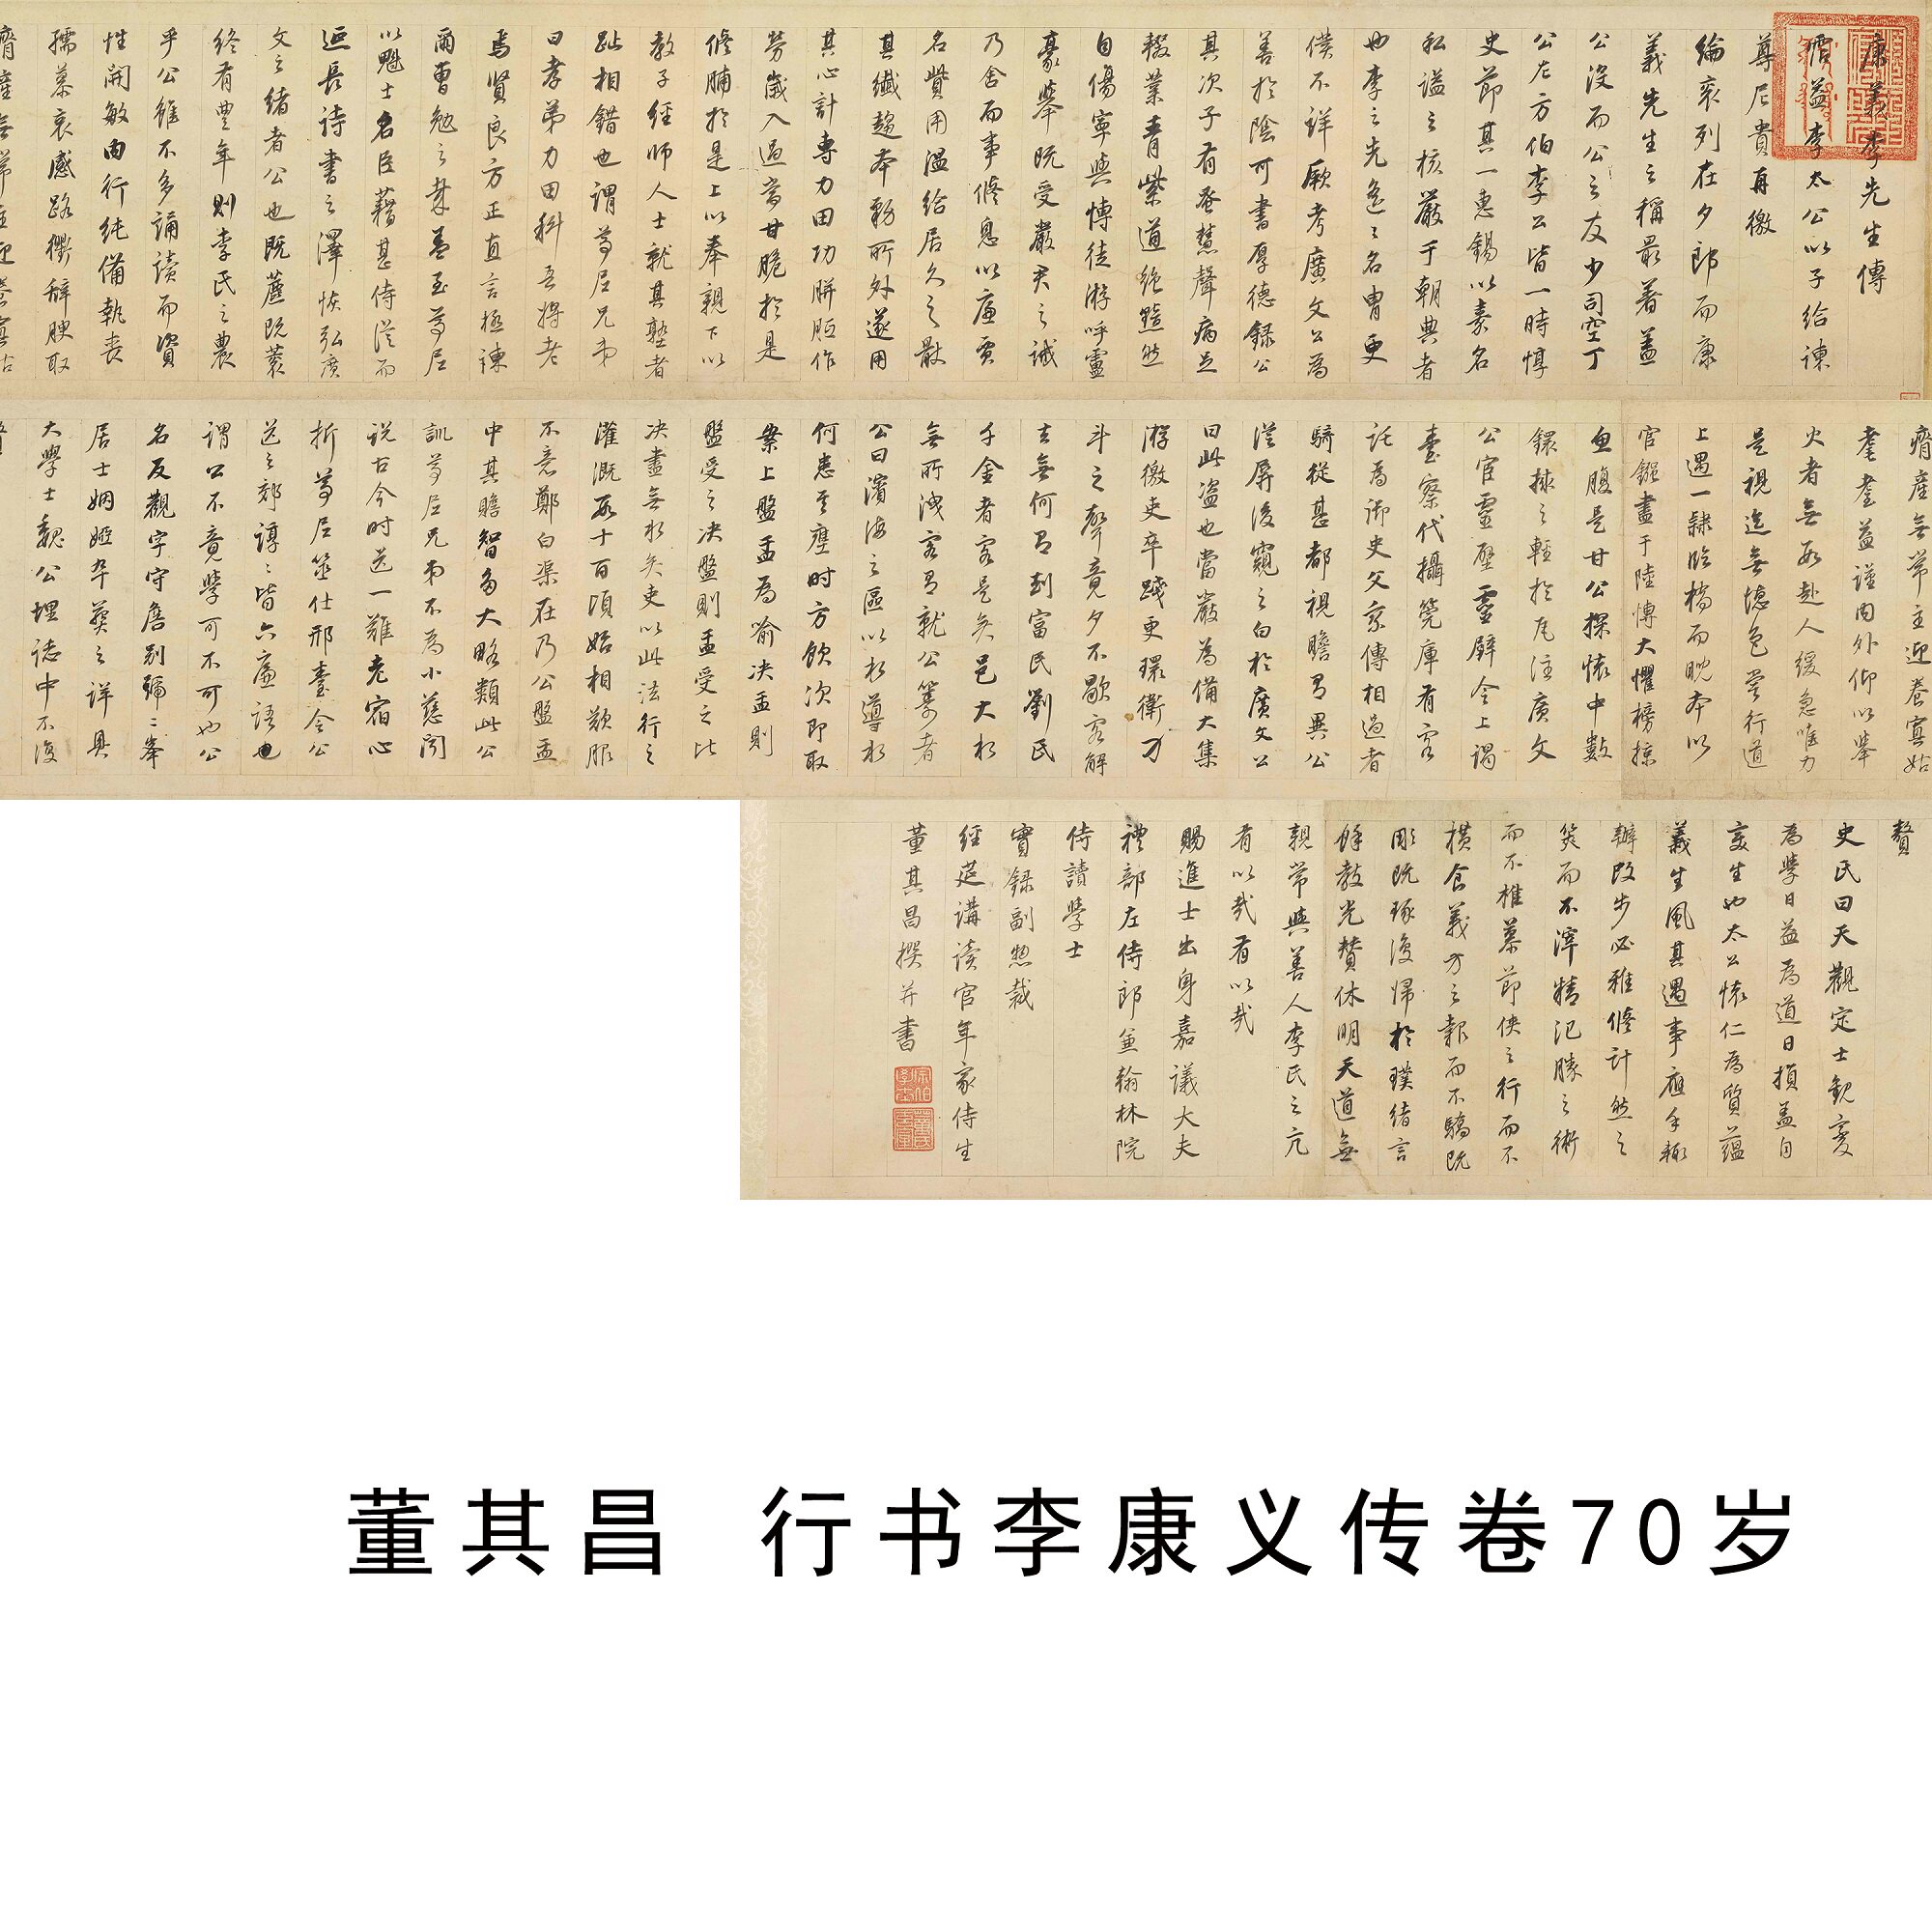 康義李先生傳
霑益李太公以子給諫
尊尼貴再徼
綸褒列在夕郎而康
義先生之稱最著蓋
公沒而公之友少司空丁
公左方伯李公皆一時惇
史節其一惠錫以素名
私謚之核嚴于朝典者
也李之先
名胄更
僕不詳厥考廣文公為
善於陰可書厚德錄公
其次子有蚤慧聲病
輟業青紫道絕
自傷寧與博徒游呼盧
豪舉既受嚴君之誡
乃舍而事修息以廉賈
名貲用溫給居久之
其纖趨本
所外遂用
其心計專力田功胼胝作
勞歲入過當甘脆於是
修脯於是上以奉親下以
教子經師人士就其塾者
趾相錯也謂尊尼兄弟
曰孝弟力田科吾將老
焉賢良方正直言極諫
爾曹勉之
至尊尼
以魁士名臣藉甚侍從而
延長詩書之澤恢弘廣
文之緒者公也既
終有豐年則李氏之農
乎公雖不多誦讀而資
性開敏內行純備執喪
孺慕哀感路衢辭腴取
瘠產無常主迎養寡姑
耄耋益謹內外仰以舉
火者無
赴人緩急唯力
是視迄無德色嘗行道
上遇一隸臨橋而
官鏹盡于陸博大懼榜掠
魚腹是甘公探懷中數
鐶拯之輕於瓦注廣文
公宦靈壁靈壁令上謁
臺察代攝筦庫有客
託為御史父
傳相過者
騎從甚都視瞻
異公
從屏後窺之白於廣文公
曰此盜也當嚴為備大集
游徼吏卒踐更環衛
斗之聲竟夕不歇客解
去無何
到富民劉氏
千金者客是矣邑大水
無所洩客
就公籌者
公曰濱海之區以水導水
何患
時方飲次即取
案上盤盂為喻決盂則
盤受之決盤則盂受之比
決盡無水矣吏以此法行之
灌溉
十百頃始相歎服
不意鄭白渠在乃公盤盂
中其贍智多大略類此公
訓尊尼兄弟不為小慈間
說古今時送一難老宿心
折尊尼筮仕邢臺令公
送之郊諄諄皆六廉語也
謂公不竟學可不可也公
名反觀字守詹別號二峯
居士姻婭卒葬之詳具
大學士魏公埋誌中不復
贅
史氏曰天觀定士
變
為學日益為道日損蓋自
亥生也太公懷仁為質蘊
義生風其遇事應手輒
辦改步必雅修計然之
筴而不滓精氾勝之術
而不椎慕節俠之行而不
橫食義方之報而不驕既
彫既琢復歸於璞緒言
餘教光贊休明天道無
親常與善人李氏之亢
有以哉有以哉
賜進士出身嘉議大夫
禮部左侍郎兼翰林院
侍讀學士
實錄副總裁
經筵講讀官年家侍生
董其昌撰并書
董其昌 行书李康义传卷70岁